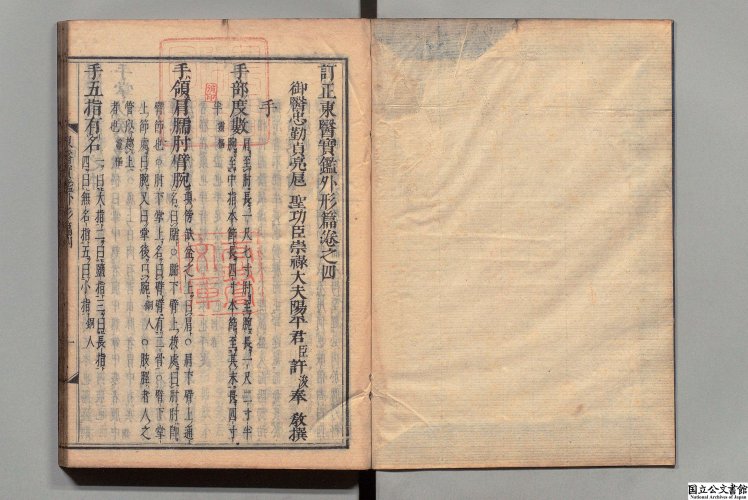 訂正東醫寶鑑外形篇卷之四
御醫忠勤貞亮扈 聖功臣崇祿大夫陽平君臣許浚奉 敎撰
手
手部度數 肩至肘長一尺七寸肘至腕長一尺二寸半
腕至中指本節長四寸本節至其末長四寸
半 靈樞
手領肩臑肘臂腕 項傍缺盆之上曰肩○肩下臂上通
名曰臑○臑下臂上接處曰肘肘間
臂節也○肘下掌上名曰臂臂有二骨○臂下掌
上節處曰腕又曰掌後曰腕 銅人 ○肢脛者人之
管以趨
者也 靈樞
手五指有名 一曰大指二曰 指三曰長指
四曰無名指五曰小指 銅人
国立公文書館
National Archives of Japan